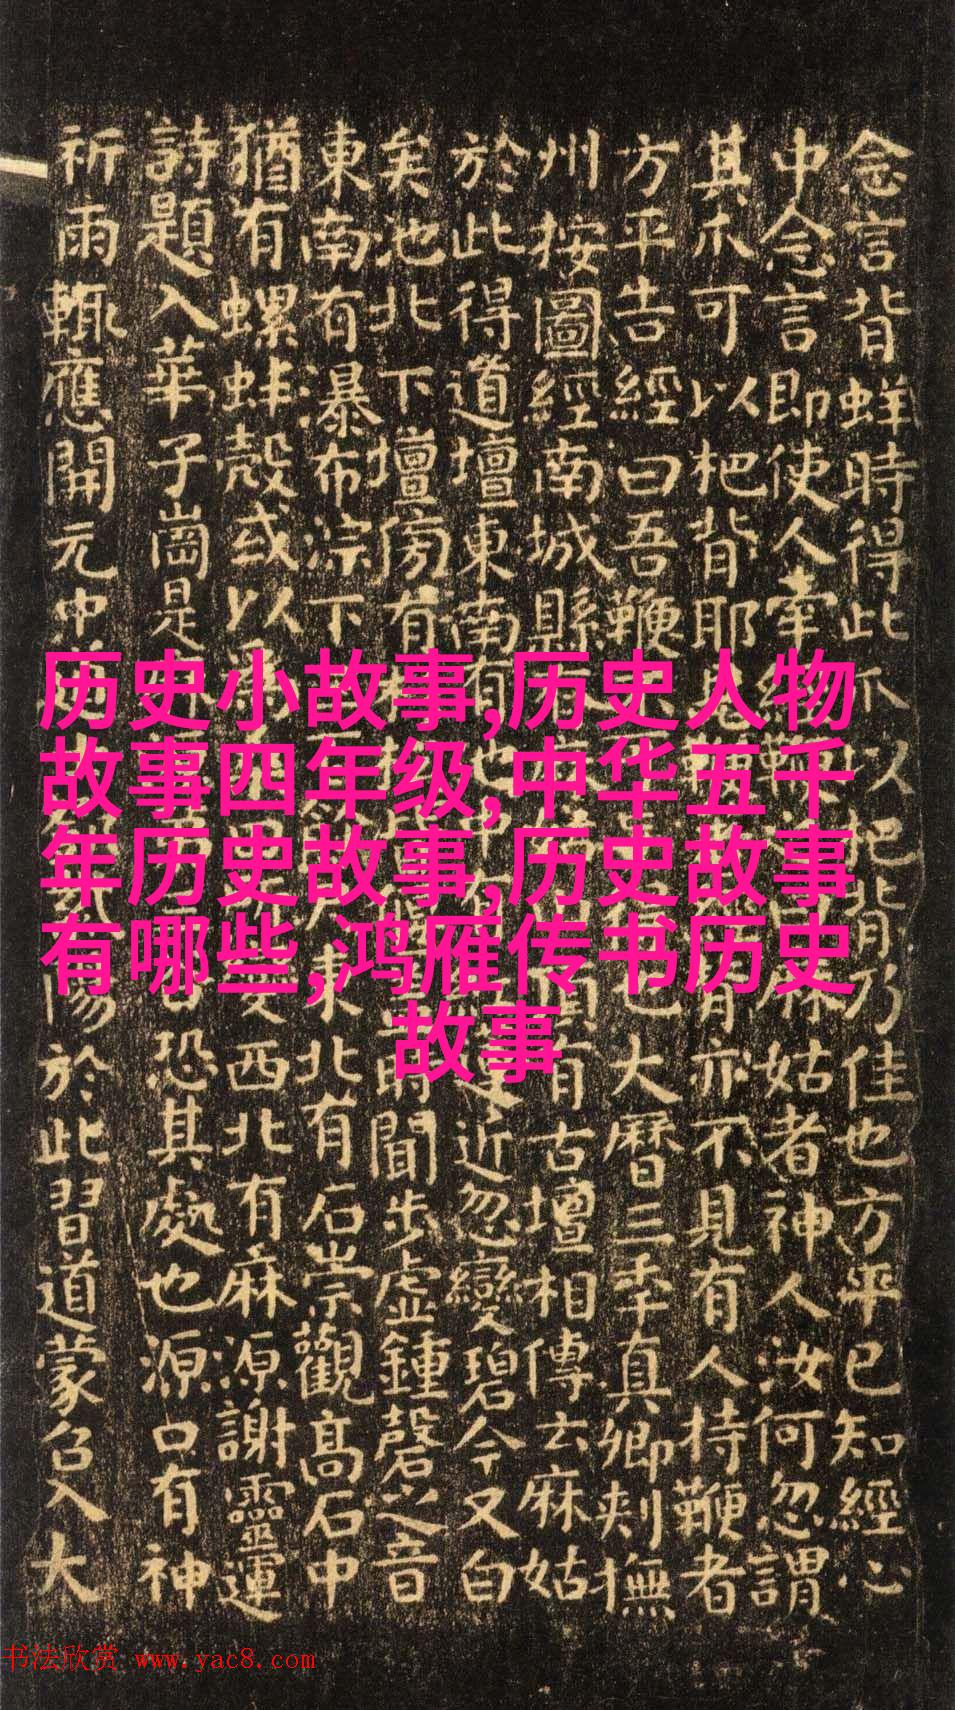 念言背蛘時得此爪以把背乃佳也方平已知經心
中念言即使人牽姑者神人汝何忽謂
其爪可以杷背耶有亦不見有人持鞭者
方平告經曰吾鞭也大曆三年真卿刺撫
州按圖經南城縣有古壇相傳云麻姑
於此得道壇東南有近忽變碧今又白
矣池北下壇傍有時聞步虛鍾磬之音
東南有瀑布淙下東北有石崇觀高石中
猶有螺蚌殼或以西北有麻源謝靈運
詩題入華子崗是恐其處也源口有神
祈雨輒應開元中陽於此習道蒙召入大
历史小故事,历史人物
故事四年级,中华五千
年历史故事,历史故事
有哪些,鸿雁传书历史
故事
书法欣赏 www.yac8.com